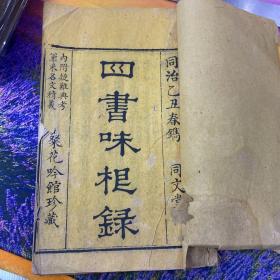 同治乙丑春鐫
同文堂
四書味根錄
內附疑難典考
兼采名文精義
聚花吟館珍藏